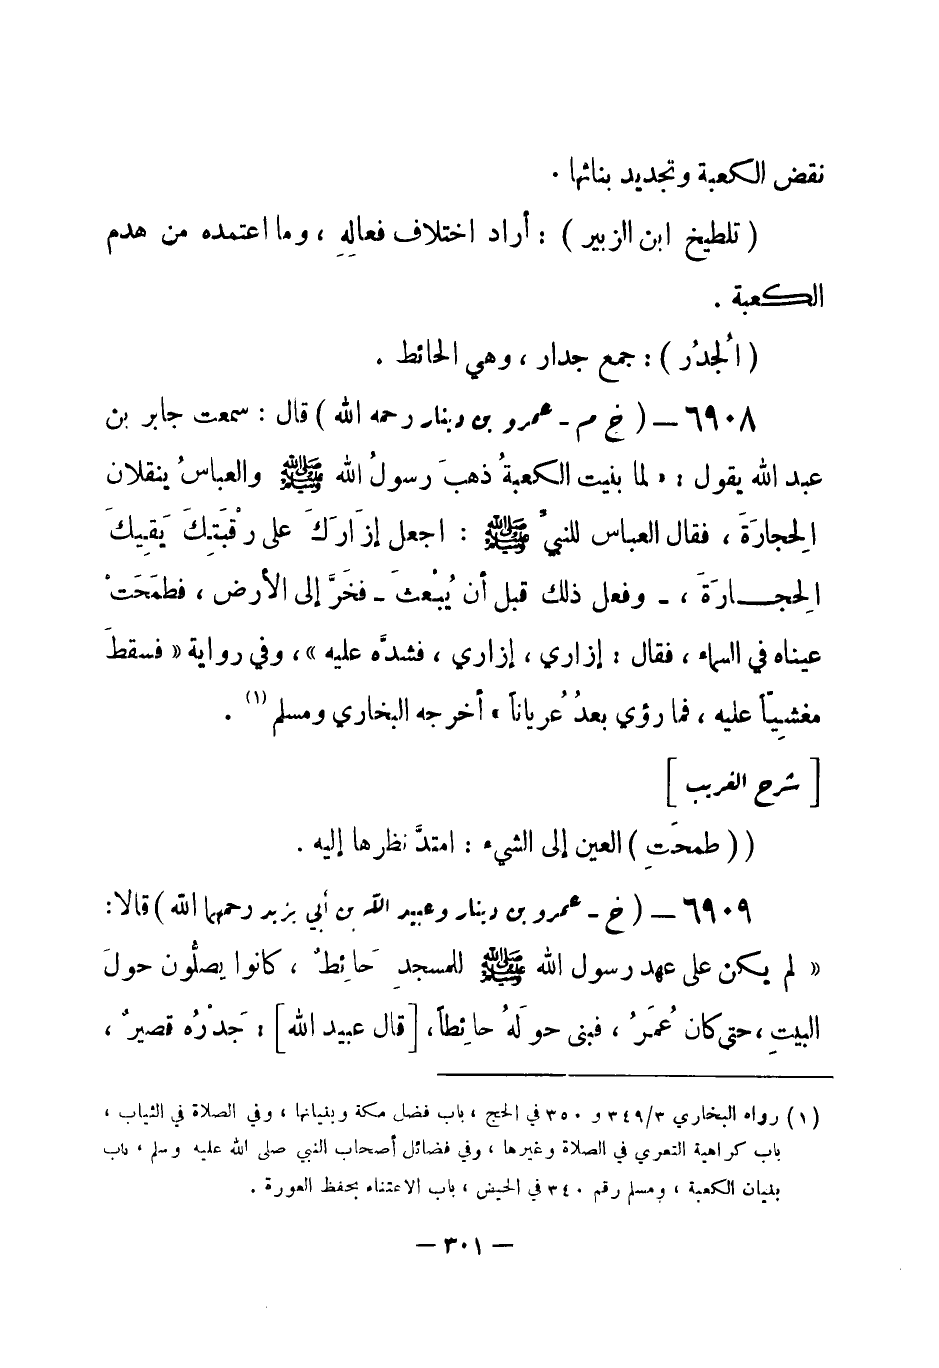 نقض الكعبة وتجديد بنائها .
( تلطيخ ابن الزبير ) : أراد اختلاف فعالِهِ ، وما اعتمده من هدم
الكعبة .
( الُجدُر ) : جمع جدار ، وهي الحائط .
٦٩٠٨ – ( خ م - عمرو بن دينار رحمه الله ) قال : سمعت جابر بن
عبد الله يقول : « لما بنيت الكعبةُ ذهبَ رسولُ الله ﷺ والعباسُ ينقلان
الِحجارَةَ ، فقال العباس للنبيِّ ﷺ : اجعل إزَارَكَ على رقبَتِكَ يَقيكَ
الِحجـــارَةَ ، - وفعل ذلك قبل أن يُبْعثَ - فخَرَّ إلى الأرض ، فطمَحَتْ
عيناه في السماء ، فقال : إزاري ، إزاري ، فشدَّه عليه » ، وفي رواية « فسقطَ
مغشيِّاً عليه ، فما رؤي بعدُ عُرياناً » أخرجه البخاري ومسلم (١) .
[ شرح الغريب ]
( ( طمحَتِ ) العين إلى الشيء : امتدَّ نظرها إليه .
٦٩٠٩ – ( خ - عمرو بن دينار وعبيد الله بن أبي يزيد رحمهما الله ) قالا :
« لم يكن على عهد رسول الله ﷺ للمسجدِ حَائِطٌ ، كانوا يصلُّون حولَ
البيتِ ، حتى كان عُمَرُ ، فبنى حولَهُ حائِطاً ، [ قال عبيد الله ] : جَدْرُه قصيرٌ ،
(١) رواه البخاري ٣٤٩/٣ و ٣٥٠ في الحج ، باب فضل مكة وبنيانها ، وفي الصلاة في الثياب ،
باب كراهية التعري في الصلاة وغيرها ، وفي فضائل أصحاب النبي صلى الله عليه وسلم ، باب
بنيان الكعبة ، ومسلم رقم ٣٤٠ في الحيض ، باب الاعتناء بحفظ العورة .
– ٣٠١ –